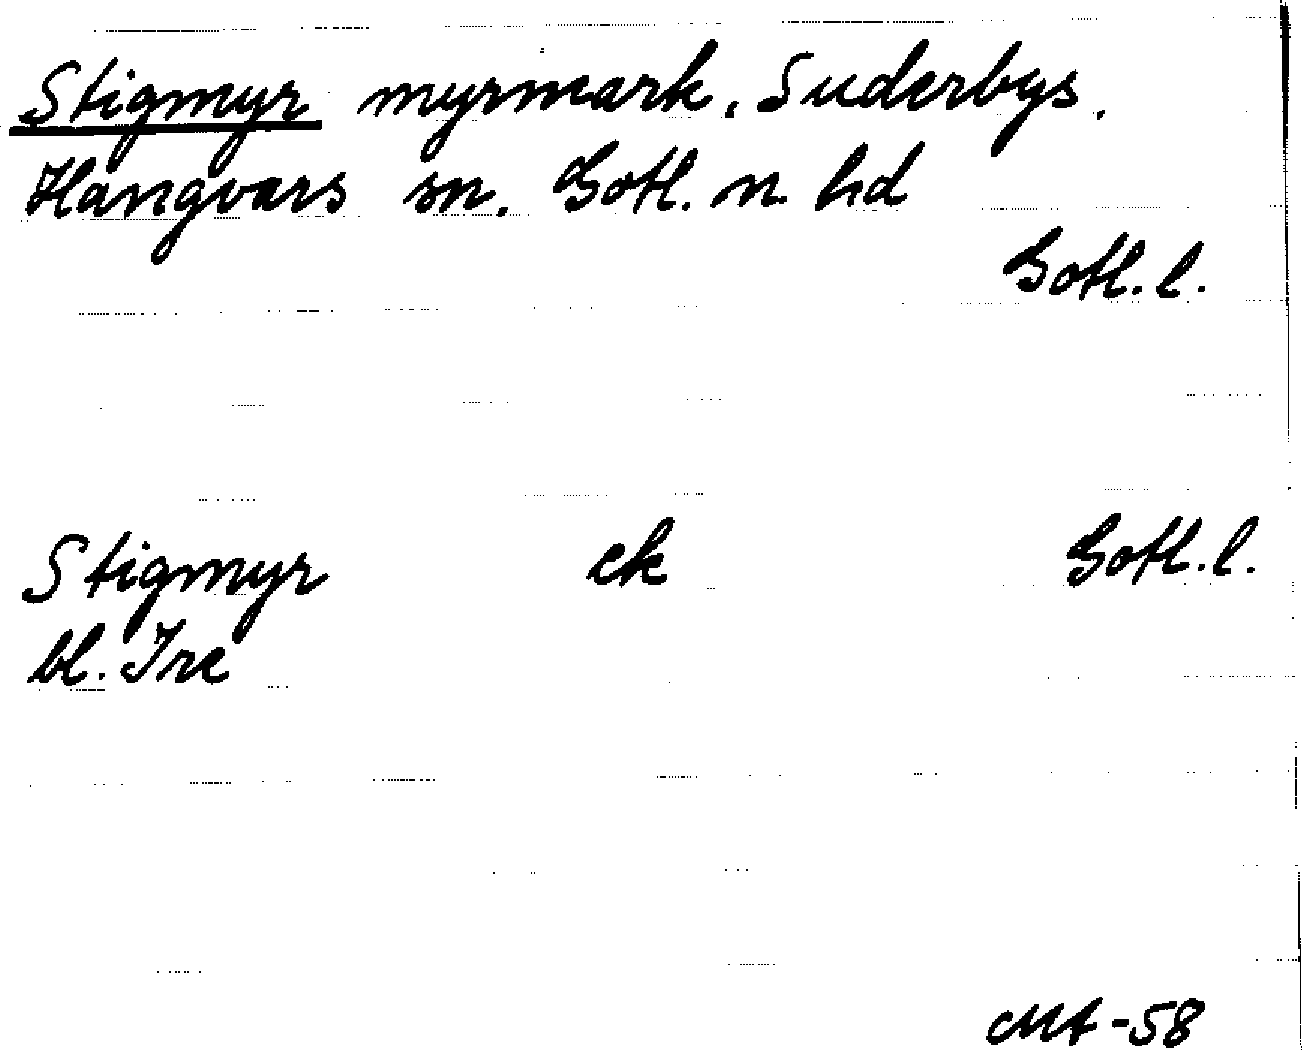 Stigmyr myrmark, Suderbys.
Hangvars sn. Gotl. n. hd
Gotl. l.
Stigmyr ek Gotl. l.
bl. Ire
Mt-58